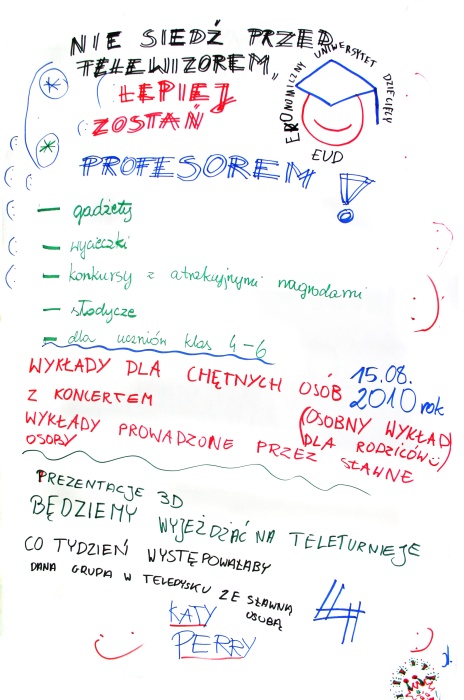 NIE SIEDŹ PRZED
TELEWIZOREM,
LEPIEJ
ZOSTAŃ
PROFESOREM!
EKONOMICZNY UNIWERSYTET DZIECIĘCY
EUD
— gadżety
— wycieczki
— konkursy z atrakcyjnymi nagrodami
— słodycze
— dla uczniów klas 4-6
WYKŁADY DLA CHĘTNYCH OSÓB 15.08.
2010 rok
Z KONCERTEM
(OSOBNY WYKŁAD
DLA RODZICÓW)
WYKŁADY PROWADZONE PRZEZ SŁAWNE
OSOBY
PREZENTACJE 3D
BĘDZIEMY WYJEŻDŻAĆ NA TELETURNIEJE
CO TYDZIEŃ WYSTĘPOWAŁABY
DANA GRUPA W TELEDYSKU ZE SŁAWNĄ
OSOBĄ
KATY
PERRY
4